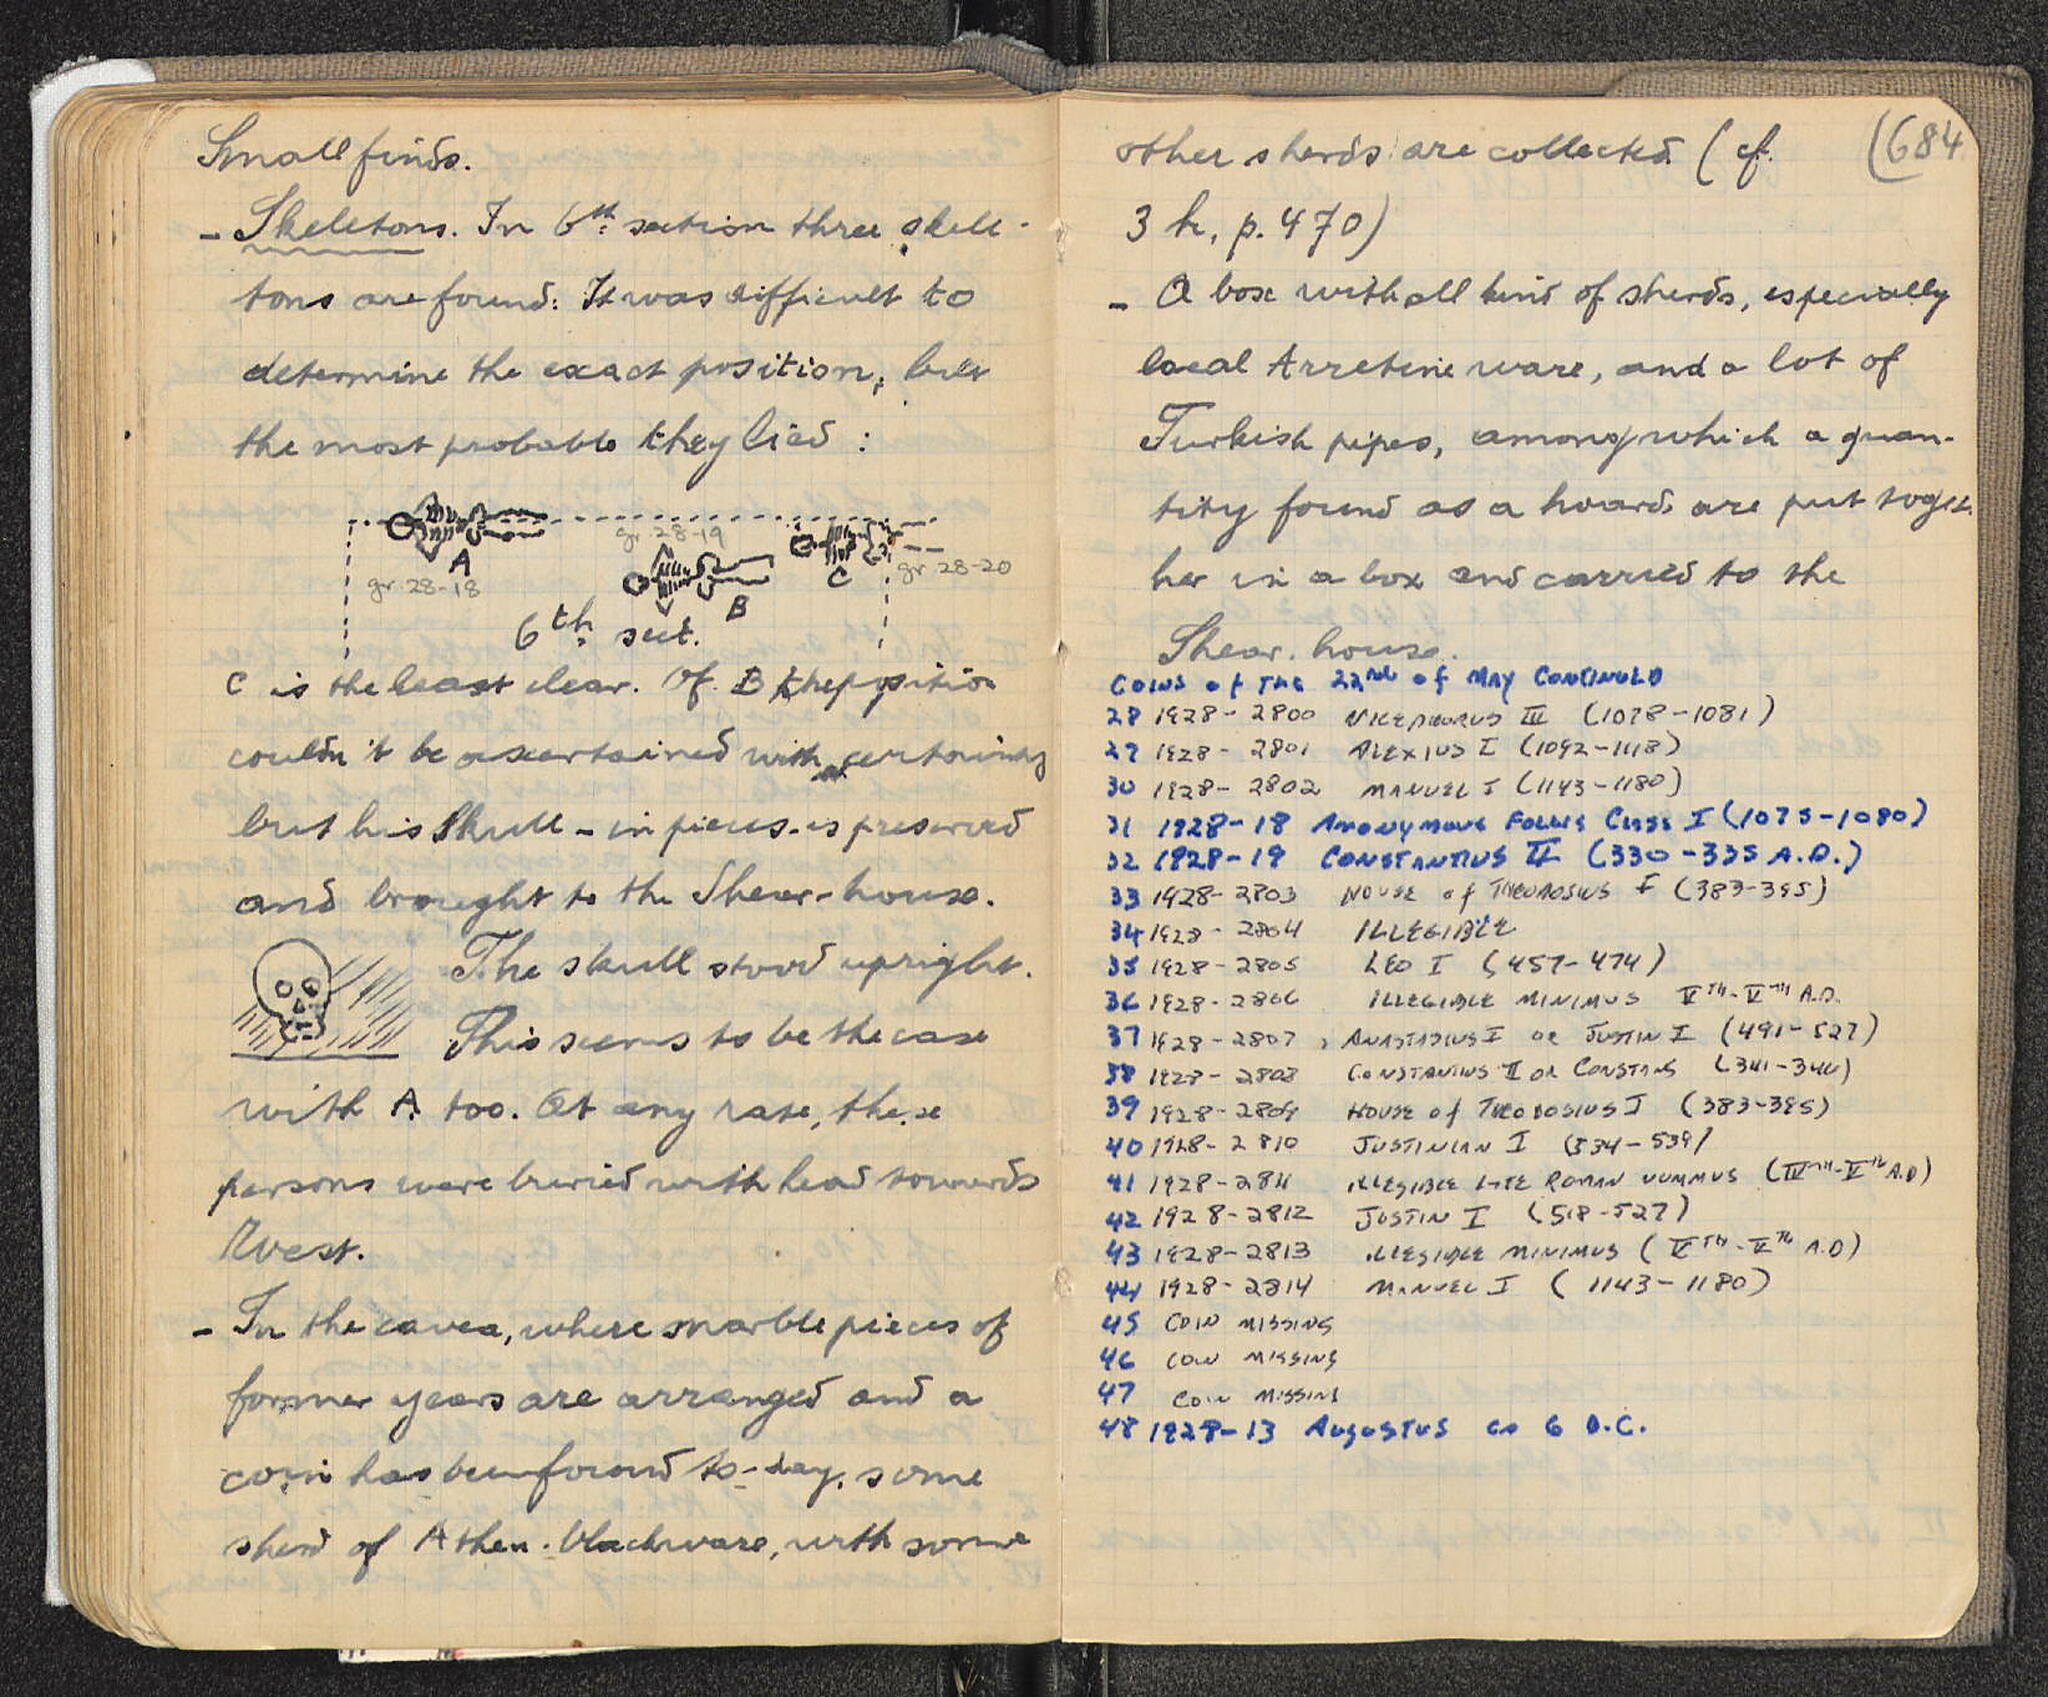 Small finds.
- Skeletons. In 6th section three skele-
tons are found: It was difficult to
determine the exact position, but
the most probable they lied :
A
gr. 28-18
gr. 28-19
B
C
gr. 28-20
6th sect.
C is the least clear. Of B the position
couldn't be ascertained with certainty
but his skull - in pieces - is preserved
and brought to the Shear-house.
The skull stood upright.
This seems to be the case
with A too. At any rate, these
persons were buried with head towards
West.
- In the cavea, where marble pieces of
former years are arranged and a
coin has been found to-day, some
sherd of Athen. blackware, with some
(684
other sherds are collected (cf.
3 h, p. 470)
- A box with all kind of sherds, especially
local Arretine ware, and a lot of
Turkish pipes, among which a quan-
tity found as a hoard, are put toget
her in a box and carried to the
Shear. house.
COINS of THE 22nd of MAY CONTINUED
28 1928-2800 NICEPHORUS III (1078-1081)
29 1928-2801 ALEXIUS I (1092-1118)
30 1928-2802 MANUEL I (1143-1180)
31 1928-18 ANONYMOUS FOLLIS CLASS I (1075-1080)
32 1928-19 CONSTANTIUS II (330-335 A.D.)
33 1928-2803 HOUSE of THEODOSIUS I (383-395)
34 1928-2804 ILLEGIBLE
35 1928-2805 LEO I (457-474)
36 1928-2806 ILLEGIBLE MINIMUS VTH-VTH A.D.
37 1928-2807, ANASTASIUS I OR JUSTIN I (491-527)
38 1928-2808 CONSTANTIUS II OR CONSTANS (341-346)
39 1928-2809 HOUSE of THEODOSIUS I (383-395)
40 1928-2810 JUSTINIAN I (534-539)
41 1928-2811 ILLEGIBLE LATE ROMAN NUMMUS (IVTH-VTH A.D)
42 1928-2812 JUSTIN I (518-527)
43 1928-2813 ILLEGIBLE MINIMUS (VTH-VTH A.D)
44 1928-2814 MANUEL I (1143-1180)
45 COIN MISSING
46 COIN MISSING
47 COIN MISSING
48 1928-13 AUGUSTUS ca 6 B.C.